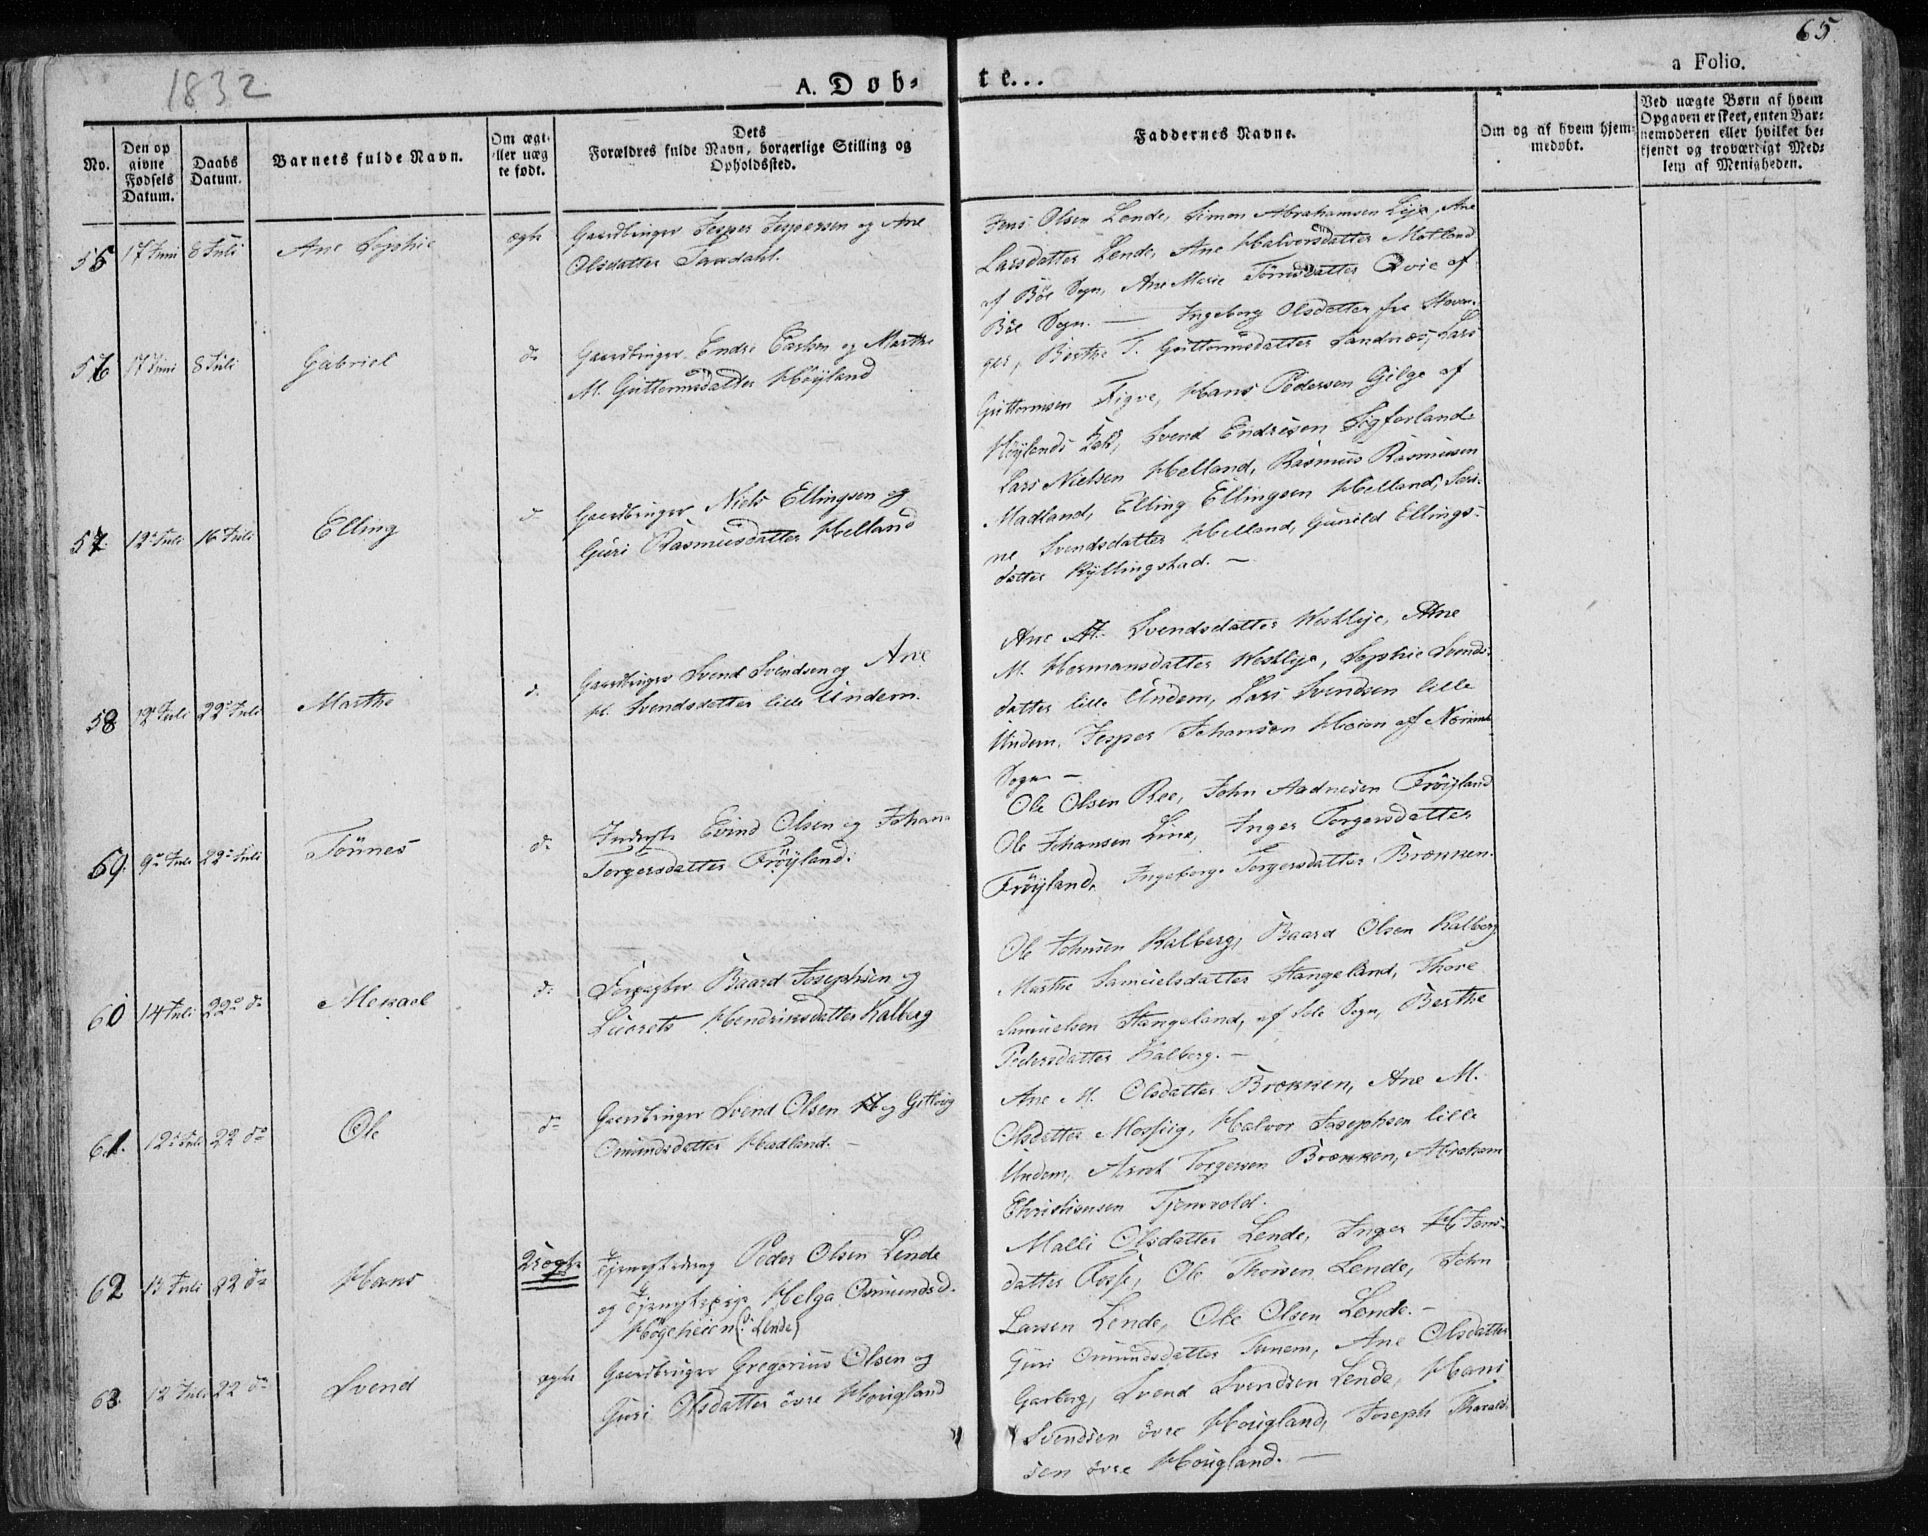 1832
A. Døb-
te...
65.
a Folio.
No.
Den op
givne
Fødsels
Datum.
Daabs
Datum.
Barnets fulde Navn.
Om ægt-
ller uæg
te født.
Dets
Forældres fulde Navn, borgerlige Stilling og
Opholdssted.
Faddernes Navne.
Om og af hvem hjem-
medøbt.
Ved uægte Børn af hvem
Opgaven er skeet, enten Bar-
nemoderen eller hvilket be-
kjendt og troværdigt Med-
lem af Menigheden.
55 17 Juni 8 Juli Ane Sophie ægte Gaardbruger Jesper Jespersen og Ane
Olsdatter
Jens Olsen Lende, Simon Abrahamsen Lye, Ane
Larsdatter Lende, Ane Halvorsdatter Motland
af Böe Sogn, Ane Marie Tönnesdatter Qvie af
Böe Sogn. —
56 17 Juni 8 Juli Gabriel do Gaardbruger Endre Larsen og Marthe
M. Guttormsdatter Höyland
Ingeborg Olsdatter fra Stavan-
ger, Berthe T. Guttormsdatter Sandnæs, Lars
Guttormsen Figve, Hans Pedersen Gilge af
Höylands Svend Endresen
57. 12 Juli 16 Juli Elling do Gaardbruger Niels Ellingsen og
Guri Rasmusdatter Helland
Lars Nielsen Helland, Rasmus Rasmusen
Madland, Elling Ellingsen Helland, Seri-
ne Svendsdatter Helland, Gunild Ellings-
datter Kyllingstad. —
58 12 Juli 22 Juli Marthe do Gaardbruger Svend Svendsen og Ane
H. Svendsdatter lille Undem.
Ane M. Svendsdatter Westlye, Ane
M. Hermansdatter Westlye, Sophie Svends-
datter lille Undem, Lars Svendsen lille
Undem, Jesper Johansen Hoien af
Sogn —
59. 9 Juli 22 Juli Tönnes do Inderste Evind Olsen og Johana
Torgersdatter Fröyland.
Ole Olsen Ree, John Aadnesen Fröyland
Ole Johansen Line, Inger Torgersdatter
Fröyland, Ingeborg Torgersdatter Brækken.
60 14 Juli 22 do Mekael do Forpagter Baard Josephsen og
Hendriksdatter Kalberg
Ole Johnsen Kalberg, Baard Olsen Kalberg
Marthe Samuelsdatter Stangeland, Thore
Samuelsen Stangeland, af Sole Sogn, Berthe
Pedersdatter Kalberg. —
61. 12 Juli 22 do Ole do Gaardbruger Svend Olsen og
Omundsdatter Hadland. —
Ane M. Olsdatter Brækken, Ane M.
Olsdatter Mossig, Halvor Josephsen lille
Undem, Arnt Torgersen Brækken, Abraham
Christiansen Tjensvold.
62 13 Juli 22 do Hans Tjenestedreng Peder Olsen Lende
og Tjenestepige Helga Omundsd.
Högeheien (: Lende)
Malli Olsdatter Lende, Inger H. Jens-
datter Fosse, Ole Thoresen Lende, John
Larsen Lende, Ole Olsen Lende. —
63. 12 Juli 22 do Svend ægte Gaardbruger Gregorius Olsen og
Guri Olsdatter övre Hougland
Guri Omundsdatter Tunem, Ane Olsdatter
Garberg, Svend Svendsen Lende, Hans
Svendsen övre Hougland, Joseph Tharald-
sen övre Hougland. —